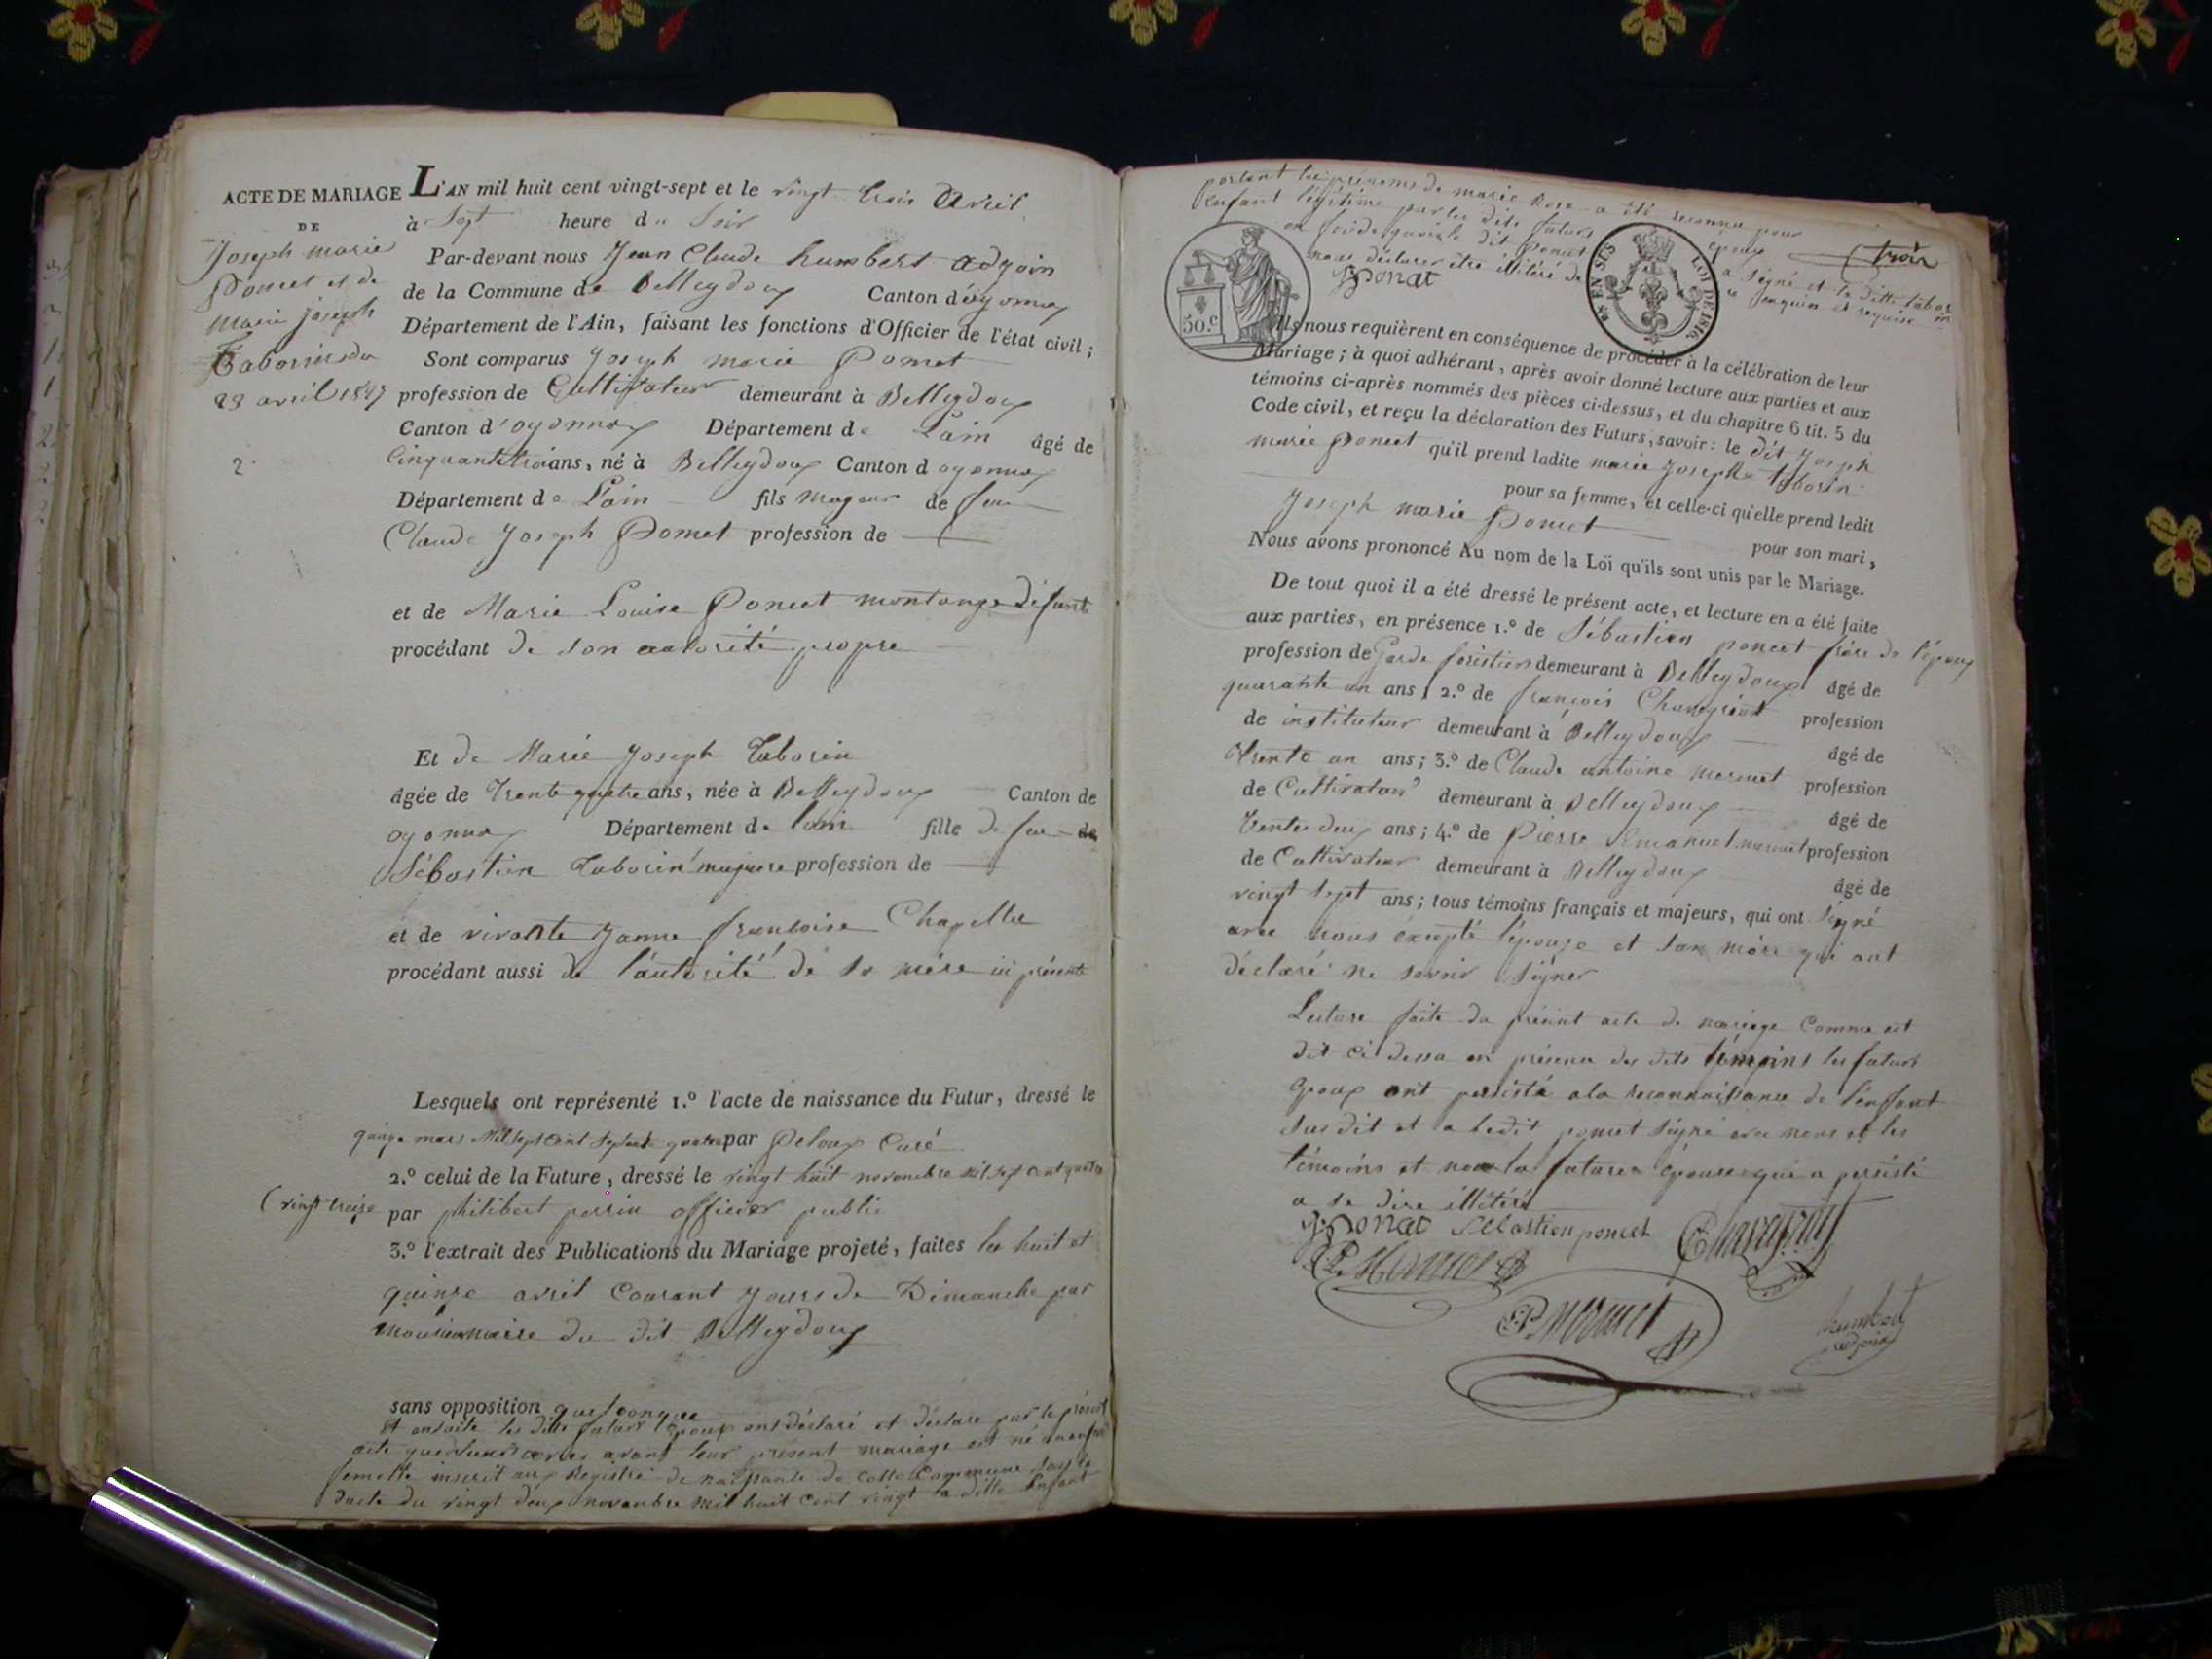 ACTE DE MARIAGE
DE
Joseph marie
Poncet et de
Marie joseph
Taborin du
23 avril 1827
2.
L'AN mil huit cent vingt-sept et le vingt trois Avril
à Sept heure du Soir
Par-devant nous Jean Claude humbert adjoin
de la Commune de Belleydoux Canton d'oyonnax
Département de l'Ain, faisant les fonctions d'Officier de l'état civil;
Sont comparus Joseph marie Poncet
profession de Cultivateur demeurant à Belleydoux
Canton d'oyonnax Département de Lain âgé de
Cinquante trois ans, né à Belleydoux Canton d oyonnax
Département de Lain fils mageur de feu
Claude Joseph Poncet profession de
et de Marie Louise Poncet montange défunte
procédant de son autorité propre
Et de Marie Joseph Taborin
âgée de Trente quatre ans, née à Belleydoux Canton de
oyonnax Département de lain fille de feu de
Sébastien Taborin majeure profession de
et de vivante Janne françoise Chapelle
procédant aussi de l'autorité de sa mère ici présente
Lesquels ont représenté 1.º l'acte de naissance du Futur, dressé le
quinze mars Mil sept cent septante quatre par Peloux Curé
2.º celui de la Future, dressé le vingt huit novembre mil sept cent quatre
(vingt treize par philibert perrin officier public
3.º l'extrait des Publications du Mariage projeté, faites les huit et
quinze avril Courant jours de Dimanche par
monsieur maire du dit Belleydoux
sans opposition quelconque
et ensuite les dits futurs époux ont déclaré et déclare par le présent
acte que avant leur présent mariage est né un enfant
femelle inscrit aux Registre de naissance de cette Commune sous la
date du vingt deux novembre mil huit cent vingt la ditte Enfant
portant les prénoms de marie Rose a été reconnu pour
Enfant légitime par les dits futurs époux
en foi de quoi le dit Poncet a signé et la ditte tabor
nous déclarer être illitéré de ce enquise et requise in
Jponcet
(trois
50.c
EN SUS
LOI DE 1816
Ils nous requièrent en conséquence de procéder à la célébration de leur
Mariage; à quoi adhérant, après avoir donné lecture aux parties et aux
témoins ci-après nommés des pièces ci-dessus, et du chapitre 6 tit. 5 du
Code civil, et reçu la déclaration des Futurs, savoir: le dit Joseph
marie Poncet qu'il prend ladite marie Joseph taborin
pour sa femme, et celle-ci qu'elle prend ledit
Joseph marie Poncet pour son mari,
Nous avons prononcé Au nom de la Loi qu'ils sont unis par le Mariage.
De tout quoi il a été dressé le présent acte, et lecture en a été faite
aux parties, en présence 1.º de Sébastien poncet frère de l'époux
profession de Garde forestier demeurant à Belleydoux âgé de
quarante un ans, 2.º de françois Chavagniat profession
de instituteur demeurant à Belleydoux âgé de
trente un ans; 3.º de Claude antoine mermet profession
de Cultivateur demeurant à Belleydoux âgé de
trente deux ans; 4.º de Pierre Emanuel mermet profession
de Cultivateur demeurant à Belleydoux âgé de
vingt sept ans; tous témoins français et majeurs, qui ont signé
avec nous éxcepté l'épouse et son mère qui ont
déclaré ne savoir signer
Lecture faite du présent acte de mariage Comme est
dit ci dessu en présence des dits témoins les futurs
époux ont persisté a la reconnoissance de l'enfant
sus dit et a ledit poncet signé avec nous et les
témoins et non la future épouse qui a persisté
a se dire illétéré
Jponcet Sébastien poncet
mermet
humbert
adjoin